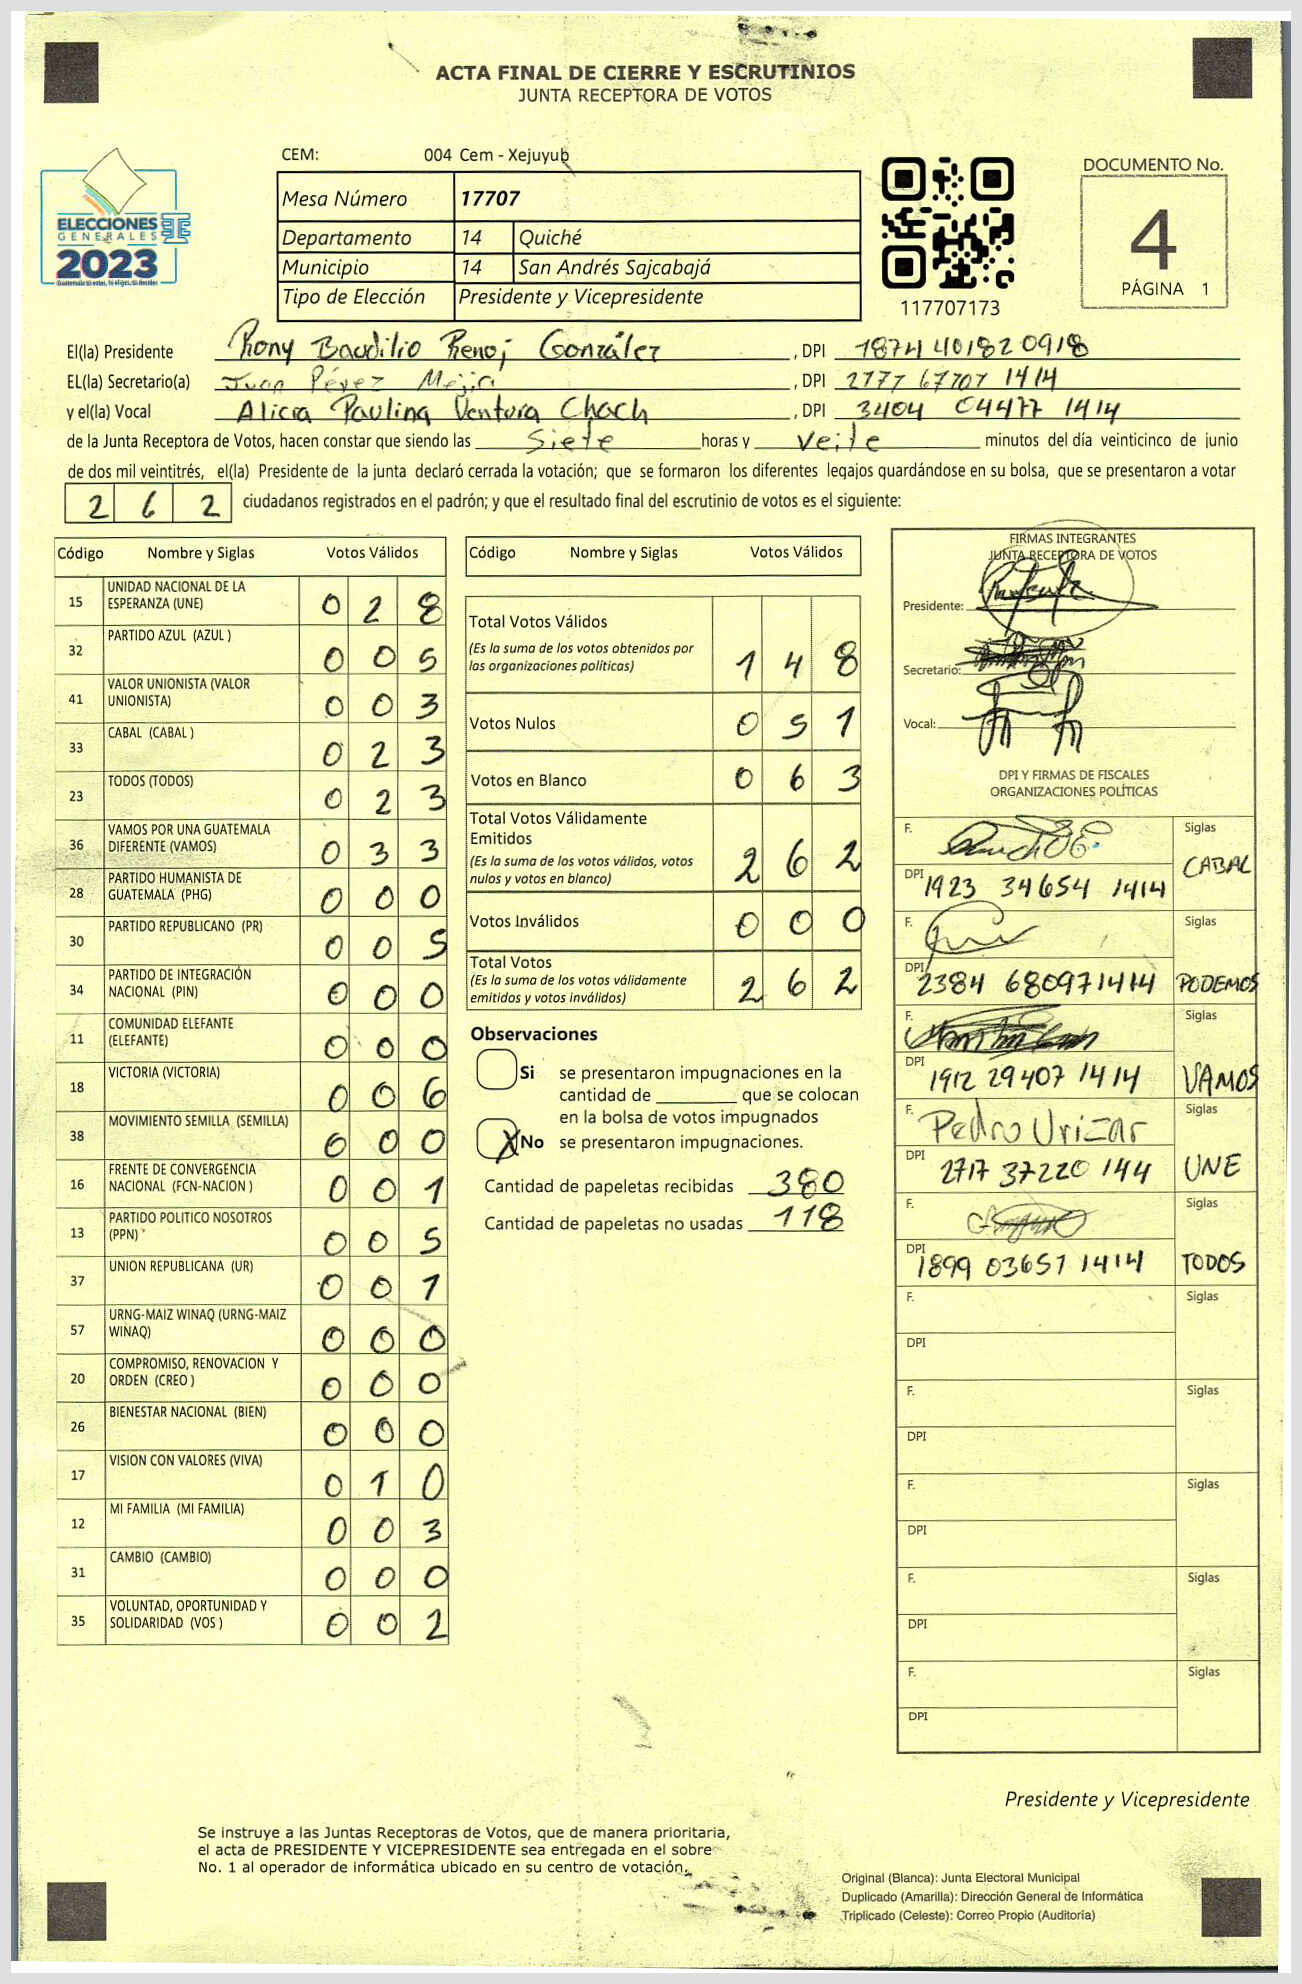 ACTA FINAL DE CIERRE Y ESCRUTINIOS
JUNTA RECEPTORA DE VOTOS
CEM: 004 Cem - Xejuyub
ELECCIONES
GENERALES
2023
Mesa Número 17707
Departamento 14 Quiché
Municipio 14 San Andrés Sajcabajá
Tipo de Elección Presidente y Vicepresidente
117707173
DOCUMENTO No.
4
PÁGINA 1
El(la) Presidente Rony Baudilio Renoj González , DPI 1874 40182 0918
EL(la) Secretario(a) Juan Pérez Mejia , DPI 2777 67707 1414
y el(la) Vocal Alicia Paulina Ventura Chach , DPI 3404 04477 1414
de la Junta Receptora de Votos, hacen constar que siendo las Siete horas y Veite minutos del día veinticinco de junio
de dos mil veintitrés, el(la) Presidente de la junta declaró cerrada la votación; que se formaron los diferentes legajos guardándose en su bolsa, que se presentaron a votar
2 6 2 ciudadanos registrados en el padrón; y que el resultado final del escrutinio de votos es el siguiente:
Código Nombre y Siglas Votos Válidos
15 UNIDAD NACIONAL DE LA ESPERANZA (UNE) 0 2 8
32 PARTIDO AZUL (AZUL ) 0 0 5
41 VALOR UNIONISTA (VALOR UNIONISTA) 0 0 3
33 CABAL (CABAL ) 0 2 3
23 TODOS (TODOS) 0 2 3
36 VAMOS POR UNA GUATEMALA DIFERENTE (VAMOS) 0 3 3
28 PARTIDO HUMANISTA DE GUATEMALA (PHG) 0 0 0
30 PARTIDO REPUBLICANO (PR) 0 0 5
34 PARTIDO DE INTEGRACIÓN NACIONAL (PIN) 0 0 0
11 COMUNIDAD ELEFANTE (ELEFANTE) 0 0 0
18 VICTORIA (VICTORIA) 0 0 6
38 MOVIMIENTO SEMILLA (SEMILLA) 0 0 0
16 FRENTE DE CONVERGENCIA NACIONAL (FCN-NACION ) 0 0 1
13 PARTIDO POLITICO NOSOTROS (PPN) 0 0 5
37 UNION REPUBLICANA (UR) 0 0 1
57 URNG-MAIZ WINAQ (URNG-MAIZ WINAQ) 0 0 0
20 COMPROMISO, RENOVACION Y ORDEN (CREO ) 0 0 0
26 BIENESTAR NACIONAL (BIEN) 0 0 0
17 VISION CON VALORES (VIVA) 0 1 0
12 MI FAMILIA (MI FAMILIA) 0 0 3
31 CAMBIO (CAMBIO) 0 0 0
35 VOLUNTAD, OPORTUNIDAD Y SOLIDARIDAD (VOS ) 0 0 2
Código Nombre y Siglas Votos Válidos
Total Votos Válidos
(Es la suma de los votos obtenidos por
las organizaciones políticas) 1 4 8
Votos Nulos 0 5 1
Votos en Blanco 0 6 3
Total Votos Válidamente
Emitidos
(Es la suma de los votos válidos, votos
nulos y votos en blanco) 2 6 2
Votos Inválidos 0 0 0
Total Votos
(Es la suma de los votos válidamente
emitidos y votos inválidos) 2 6 2
Observaciones
Si se presentaron impugnaciones en la
cantidad de ________ que se colocan
en la bolsa de votos impugnados
X No se presentaron impugnaciones.
Cantidad de papeletas recibidas 380
Cantidad de papeletas no usadas 118
FIRMAS INTEGRANTES
JUNTA RECEPTORA DE VOTOS
Presidente:
Secretario:
Vocal:
DPI Y FIRMAS DE FISCALES
ORGANIZACIONES POLÍTICAS
F. Siglas
DPI 1923 34654 1414 CABAL
F. Siglas
DPI 2384 68097 1414 PODEMOS
F. Siglas
DPI 1912 29407 1414 VAMOS
F. Pedro Urizar Siglas
DPI 2717 37220 144 UNE
F. Siglas
DPI 1899 03657 1414 TODOS
F. Siglas
DPI
F. Siglas
DPI
F. Siglas
DPI
F. Siglas
DPI
F. Siglas
DPI
Presidente y Vicepresidente
Se instruye a las Juntas Receptoras de Votos, que de manera prioritaria,
el acta de PRESIDENTE Y VICEPRESIDENTE sea entregada en el sobre
No. 1 al operador de informática ubicado en su centro de votación.
Original (Blanca): Junta Electoral Municipal
Duplicado (Amarilla): Dirección General de Informática
Triplicado (Celeste): Correo Propio (Auditoría)